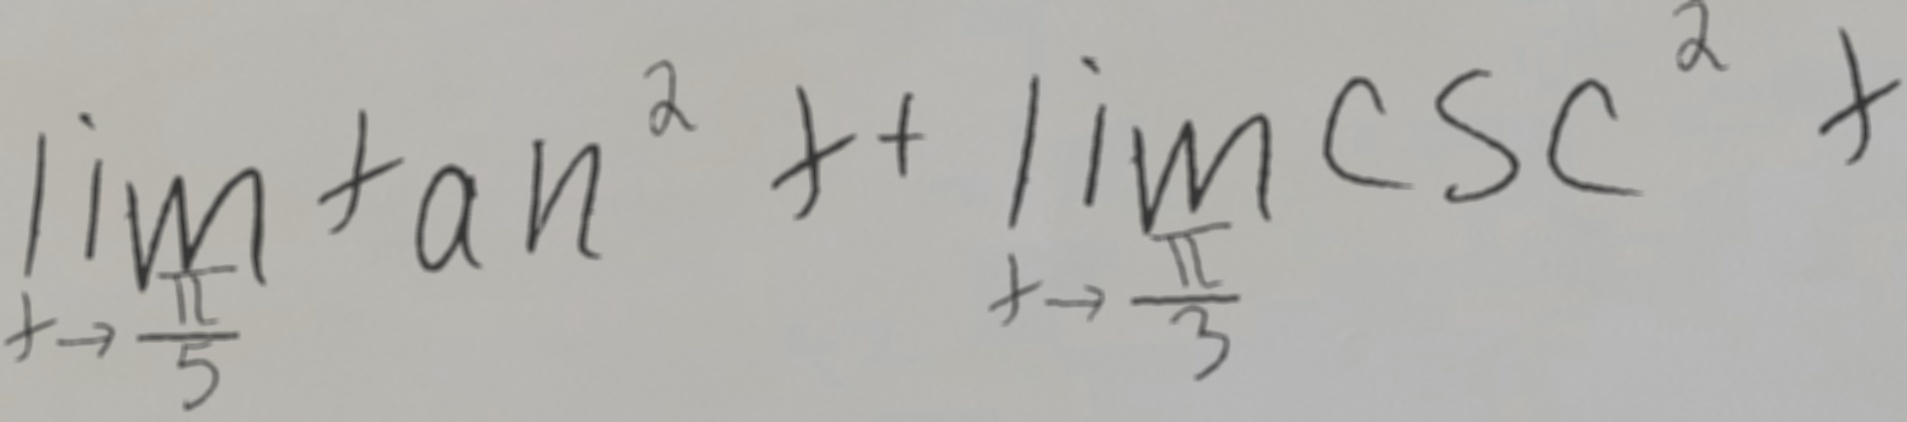 \lim_{t \to \frac{\pi}{5}} \tan^2 t + \lim_{t \to \frac{\pi}{3}} \csc^2 t